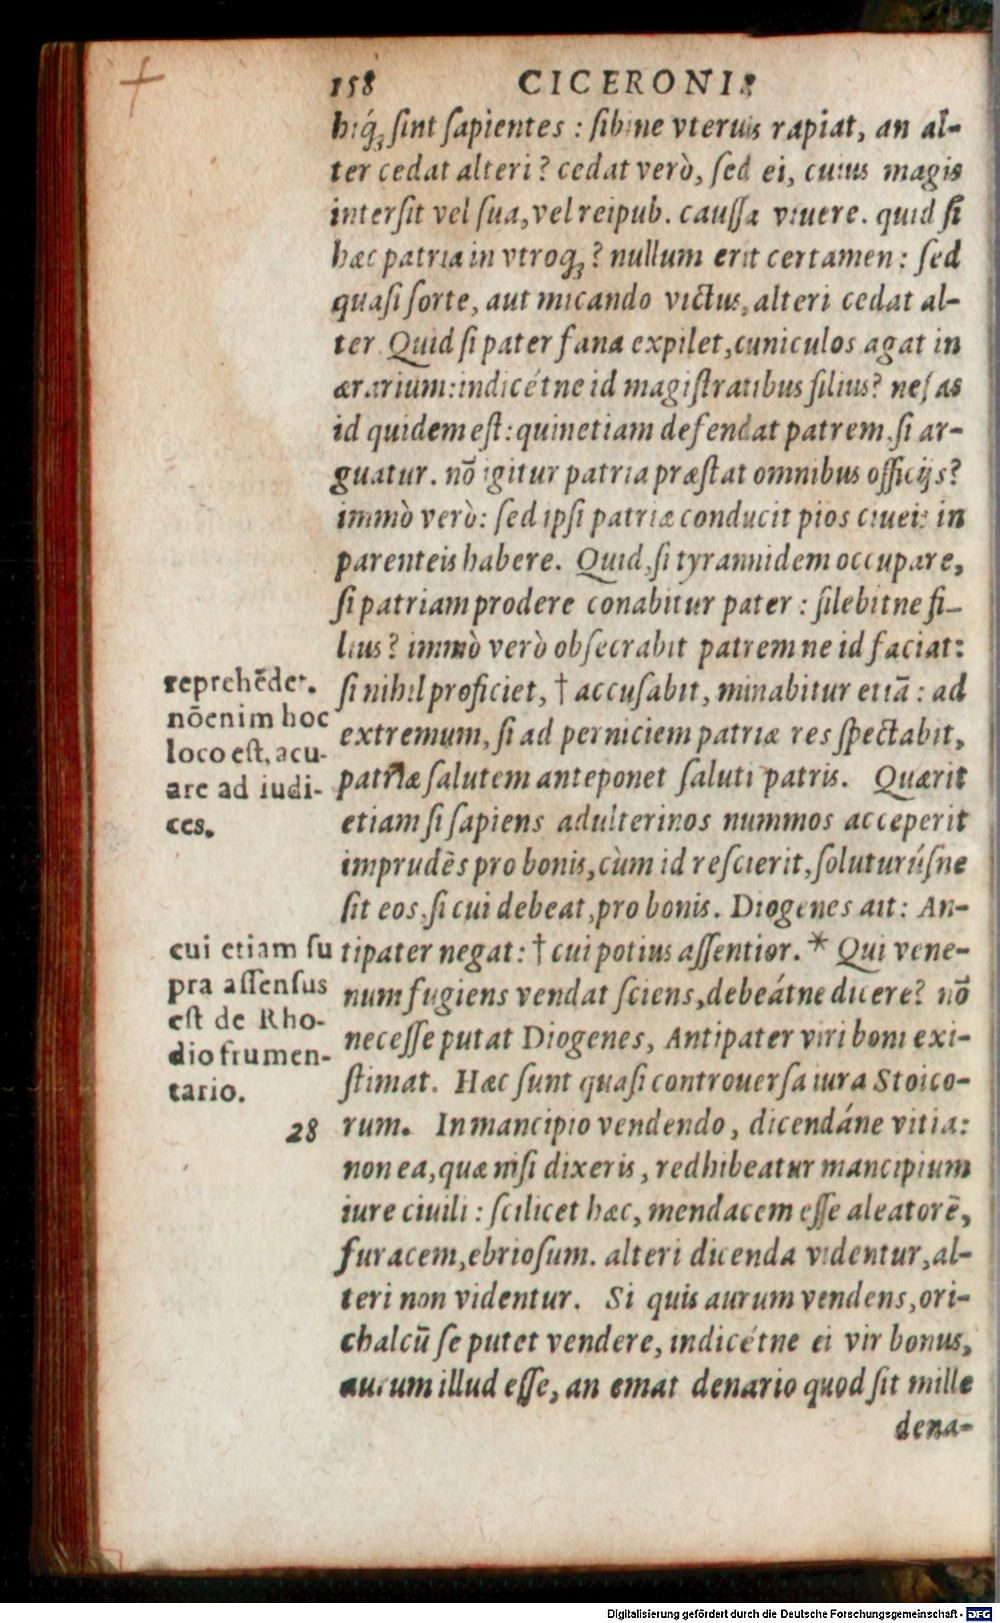 158 CICERONIS
hiq́ꝫ ſint ſapientes : ſibine vteruis rapiat, an al-
ter cedat alteri? cedat verò, ſed ei, cuius magis
interſit vel ſua, vel reipub. cauſſa viuere. quid ſi
hæc patria in vtroqꝫ? nullum erit certamen: ſed
quaſi ſorte, aut micando victus, alteri cedat al-
ter. Quid ſi pater fana expilet, cuniculos agat in
ærarium: indicétne id magiſtratibus filius? nefas
id quidem eſt: quinetiam defendat patrem, ſi ar-
guatur. nō igitur patria præſtat omnibus officijs?
immò verò: ſed ipſi patriæ conducit pios ciueis in
parenteis habere. Quid, ſi tyrannidem occupare,
ſi patriam prodere conabitur pater: ſilebitne fi-
lius? immò verò obſecrabit patrem ne id faciat:
ſi nihil proficiet, † accuſabit, minabitur etiā: ad
extremum, ſi ad perniciem patriæ res ſpectabit,
patriæ ſalutem anteponet ſaluti patris. Quærit
etiam ſi ſapiens adulterinos nummos acceperit
imprudēs pro bonis, cùm id reſcierit, ſoluturúſne
ſit eos, ſi cui debeat, pro bonis. Diogenes ait: An-
tipater negat: † cui potius aſſentior. * Qui vene-
num fugiens vendat ſciens, debeátne dicere? nō
neceſſe putat Diogenes, Antipater viri boni exi-
ſtimat. Hæc ſunt quaſi controuerſa iura Stoico-
rum. In mancipio vendendo, dicendáne vitia:
non ea, quæ niſi dixeris, redhibeatur mancipium
iure ciuili: ſcilicet hæc, mendacem eſſe aleatorē,
furacem, ebrioſum. alteri dicenda videntur, al-
teri non videntur. Si quis aurum vendens, ori-
chalcū ſe putet vendere, indicétne ei vir bonus,
aurum illud eſſe, an emat denario quod ſit mille
dena-
reprehēdet.
nōenim hoc
loco eſt, acu-
are ad iudi-
ces.
cui etiam ſu
pra aſſenſus
eſt de Rho-
dio frumen-
tario.
28
Digitalisierung gefördert durch die Deutsche Forschungsgemeinschaft - DFG